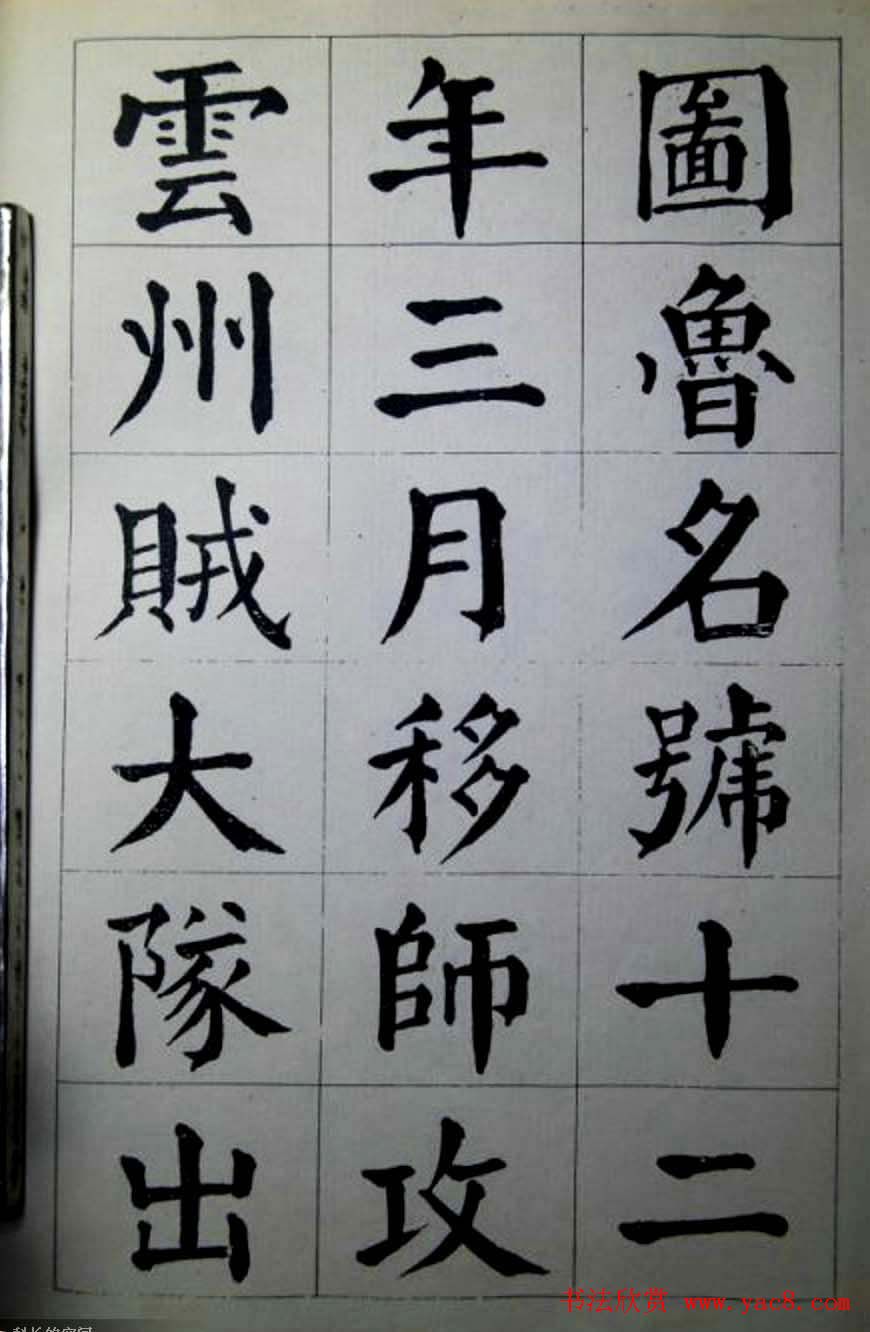 圖魯名號十二
年三月移師攻
雲州賊大隊出
书法欣赏 www.yac8.com